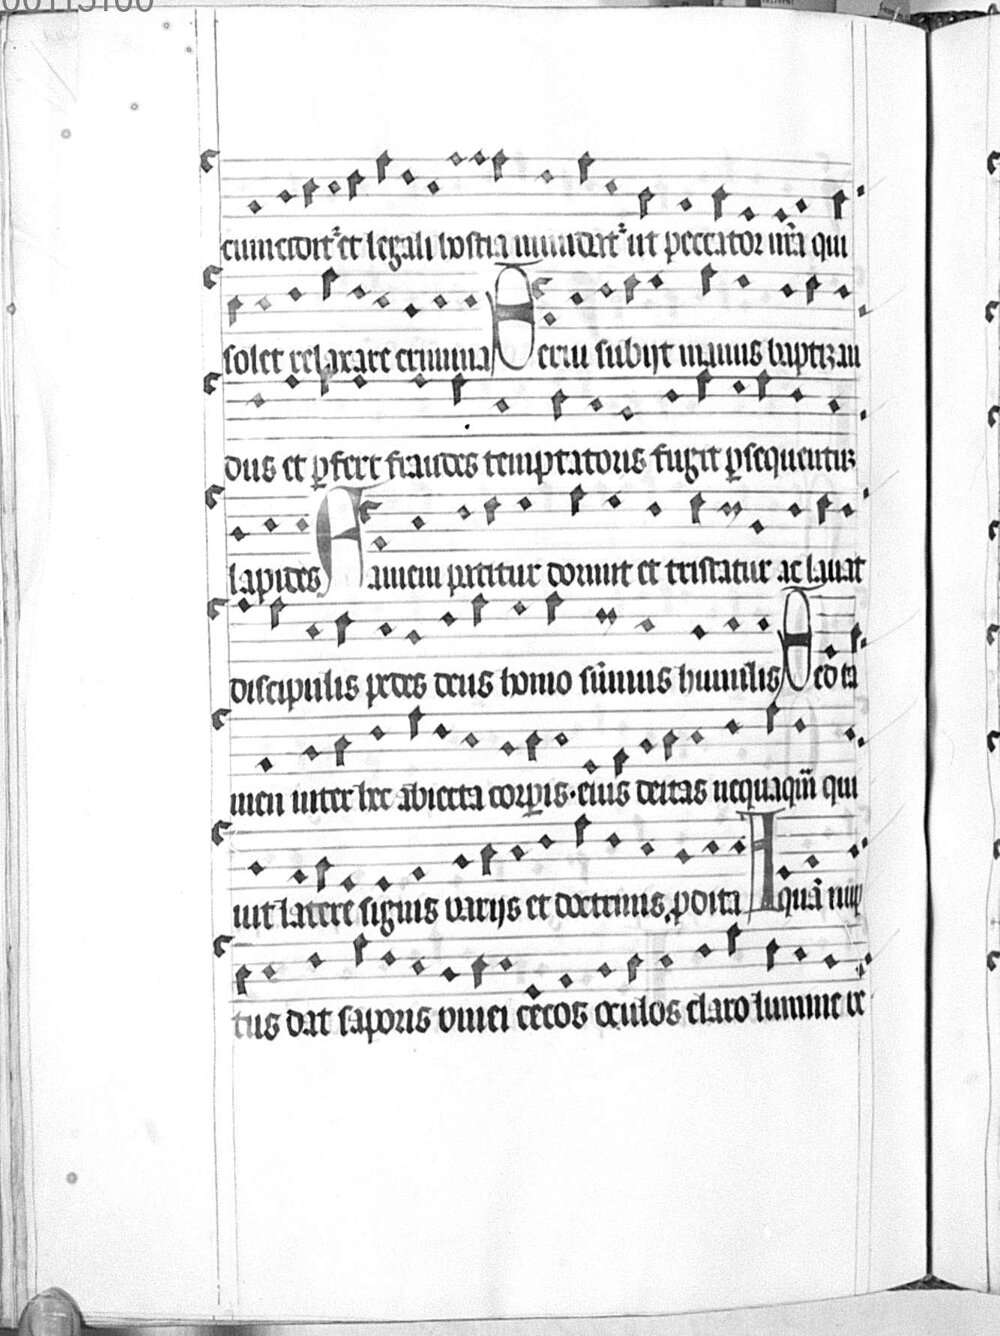 cumciditᷣ et legali hostia mundatᷣ ut peccator nr̄a qui
solet relaxare crimina Servi subijt manus baptizan
dus et ꝑfert fraudes temptatoris fugit ꝑsequentium
lapides Famem patitur dormit et tristatur ac lavat
discipulis pedes deus homo sūmus humilis Sed ta
men inter hec abiecta corꝑis · eius deitas nequaqm̄ qui
uit latere signis varijs et doctrinis ꝓdita Aquā nup
tus dat saporis vinei cecos oculos claro lumine ve